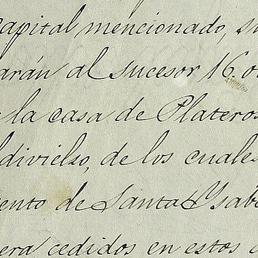 capital mencionado, su
arán al sucesor 16.0
la casa de Plateros
ldivielso, de los cuales
ento de Santa Ysab
era cedidos en estos